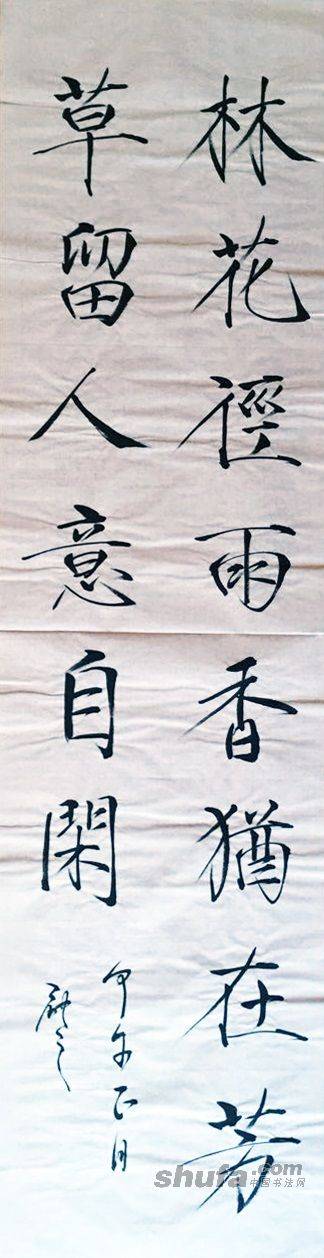 林花徑雨香猶在芳
草留人意自閑
甲午正月
shufa.com
中国书法网